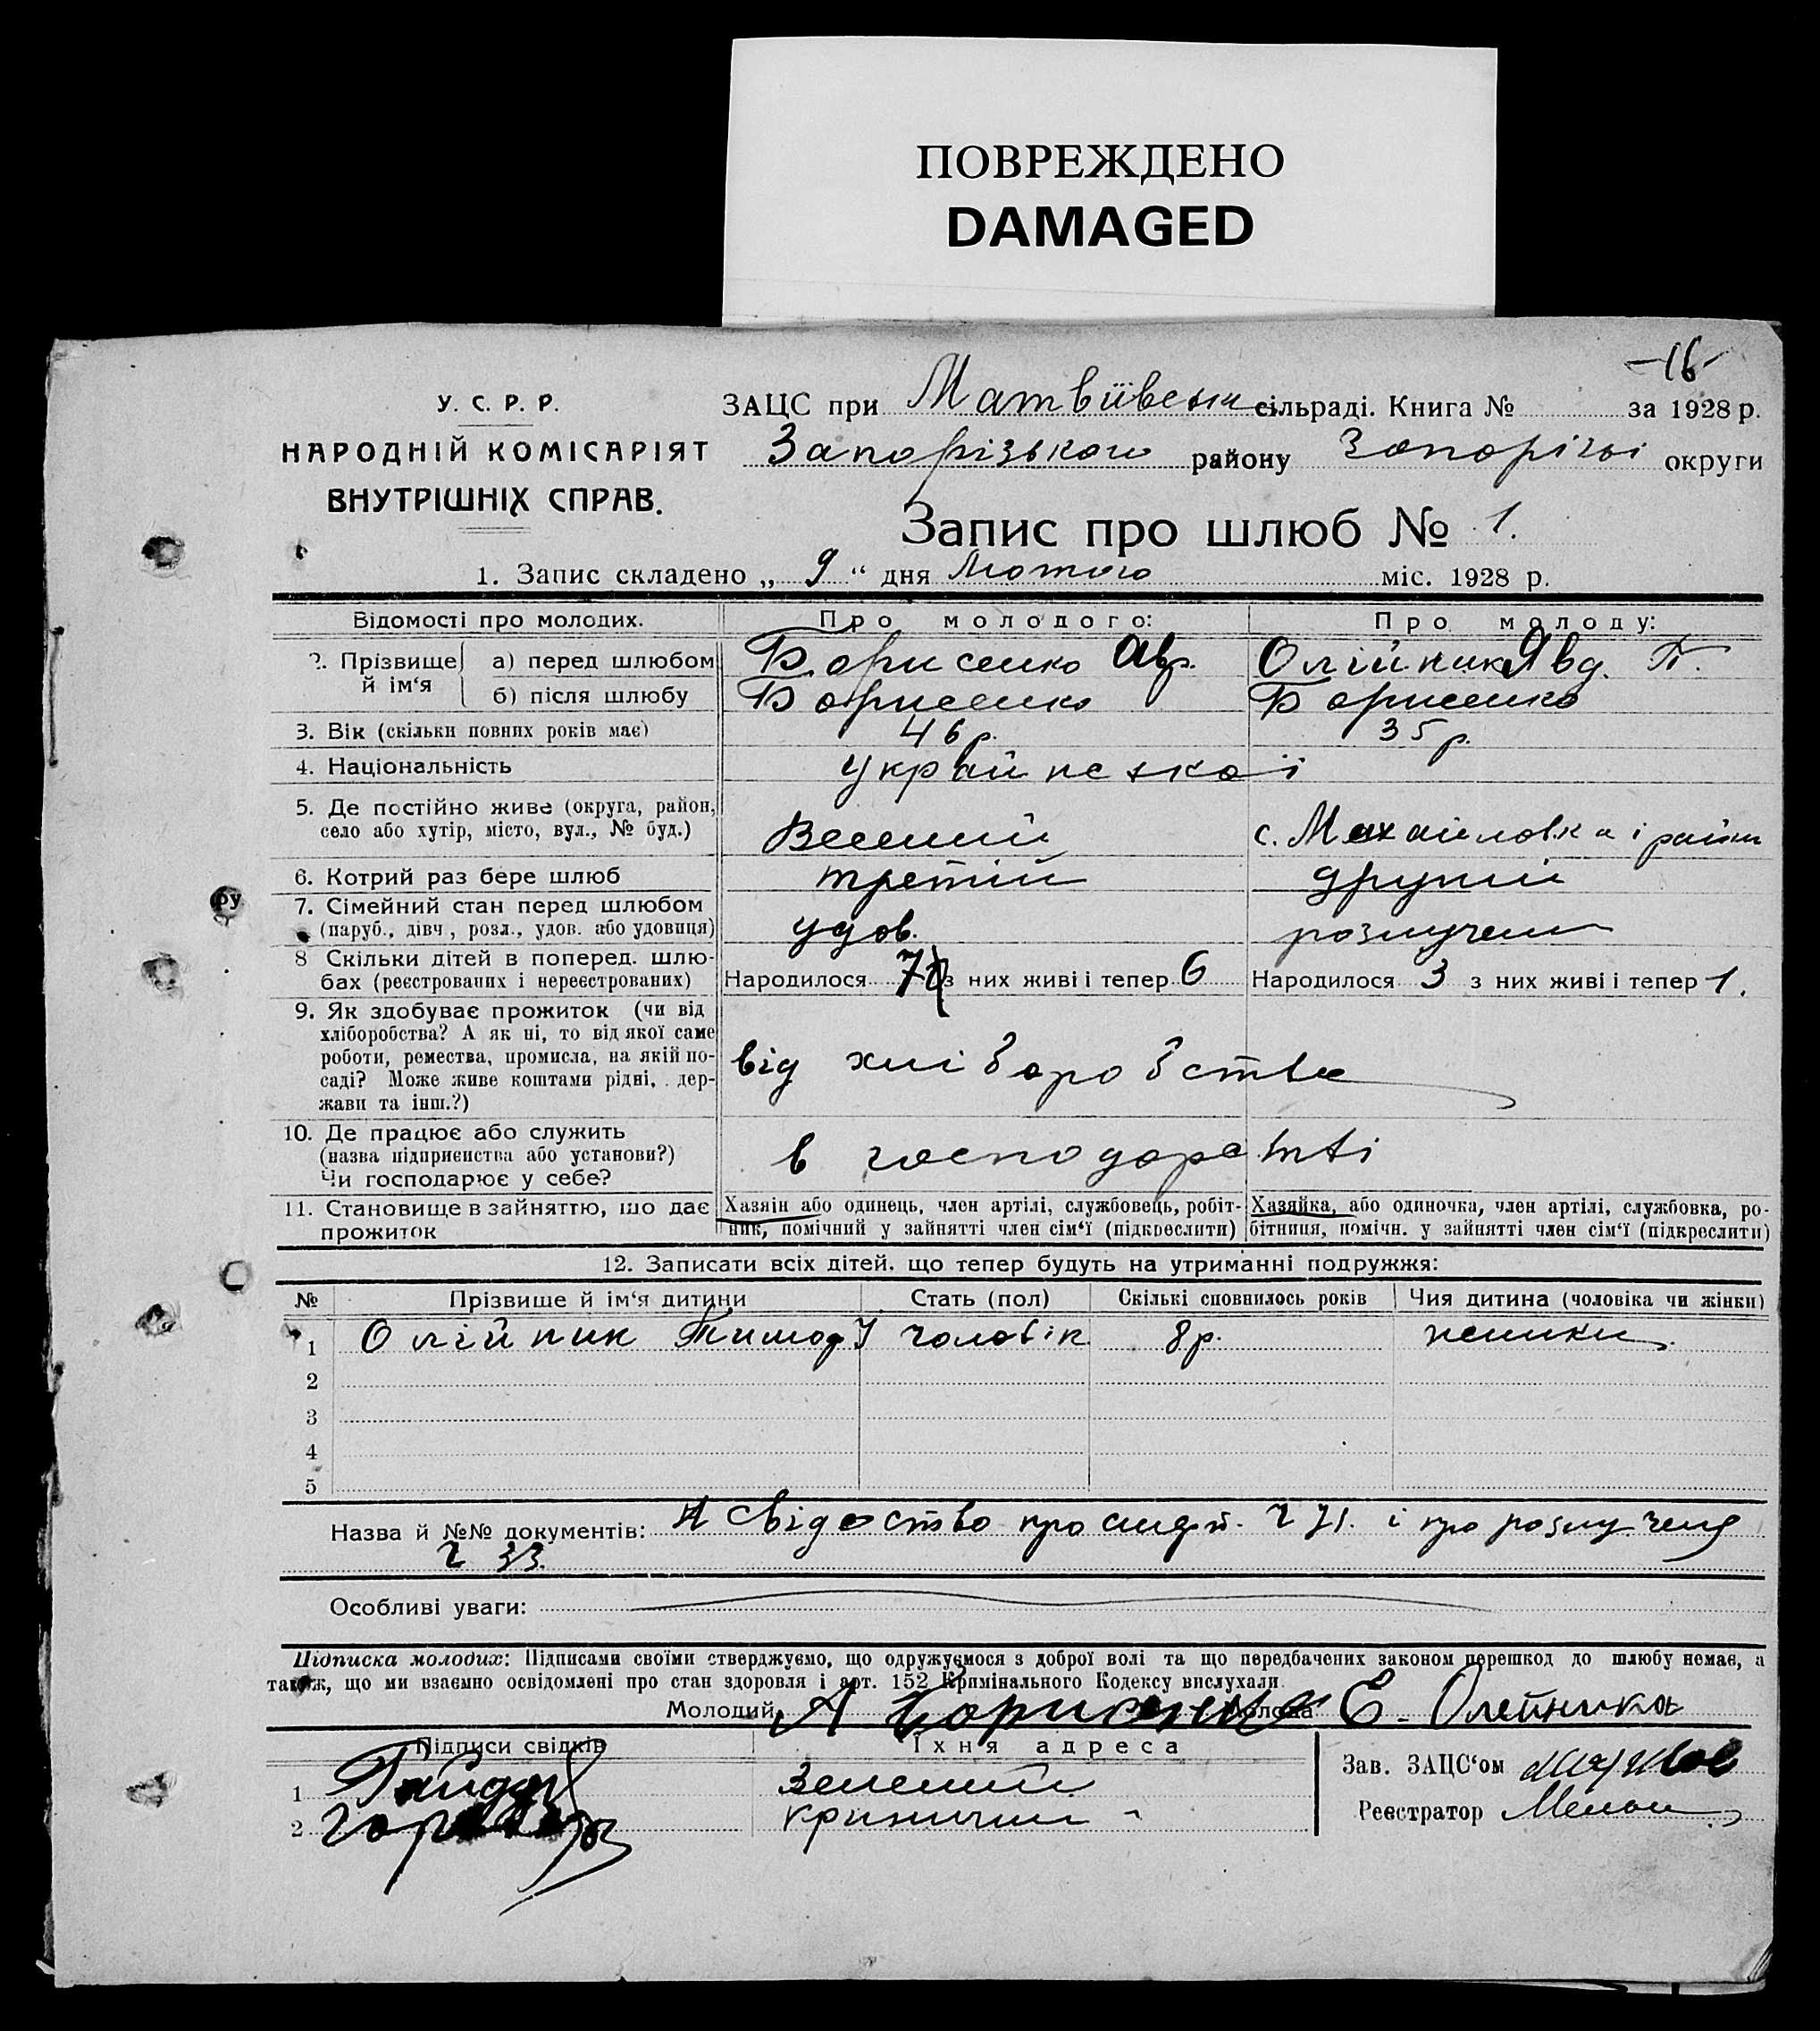 ПОВРЕЖДЕНО
DAMAGED
-16-
У. С. Р. Р.
НАРОДНІЙ КОМІСАРІЯТ
ВНУТРІШНІХ СПРАВ.
ЗАЦС при Матвіївськ сільраді. Книга № за 1928 р.
Запорізького району Запоріжі округи
Запис про шлюб № 1.
1. Запис складено „ 9 “ дня Лютого міс. 1928 р.
Відомості про молодих. Про молодого: Про молоду:
2. Прізвище й ім‘я а) перед шлюбом Борисенко Авр. Олійник Явд. П.
б) після шлюбу Борисенко Борисенко
3. Вік (скільки повних років має) 46 р. 35 р.
4. Національність Української
5. Де постійно живе (округа, район,
село або хутір, місто, вул., № буд.) Веселий с. Михайловка і район
6. Котрий раз бере шлюб третій другий
7. Сімейний стан перед шлюбом
(паруб., дівч., розл., удов. або удовиця) удов. розлучени
8 Скільки дітей в поперед. шлю-
бах (реєстрованих і нереєстрованих) Народилося 7 з них живі і тепер 6 Народилося 3 з них живі і тепер 1.
9. Як здобуває прожиток (чи від
хліборобства? А як ні, то від якої саме
роботи, ремества, промисла, на якій по-
саді? Може живе коштами рідні, дер-
жави та інш.?) від хліборобства
10. Де працює або служить
(назва підприємства або установи?)
Чи господарює у себе? в господарстві
11. Становище в зайняттю, що дає
прожиток
Хазяїн або одинець, член артілі, службовець, робіт-
ник, помічний у зайнятті член сім‘ї (підкреслити)
Хазяйка, або одиночка, член артілі, службовка, ро-
бітниця, помічн. у зайнятті член сім‘ї (підкреслити)
12. Записати всіх дітей, що тепер будуть на утриманні подружжя:
№ Прізвище й ім‘я дитини Стать (пол) Скількі сповнилось років Чия дитина (чоловіка чи жінки)
1 Олійник Тимоф чоловік 8 р.
2
3
4
5
Назва й №№ документів: Свідоство про смерт. ч 71. і про розлученя
ч 33.
Особливі уваги:
Підписка молодих: Підписами своїми стверджуємо, що одружуємося з доброї волі та що передбачених законом перешкод до шлюбу немає, а
також, що ми взаємно освідомлені про стан здоровля і арт. 152 Кримінального Кодексу вислухали.
Молодий А Борисенко Молода Е. Олейника
Підписи свідків Їхня адреса
1 Зелений
2 криничний
Зав. ЗАЦС‘ом
Реєстратор
ру